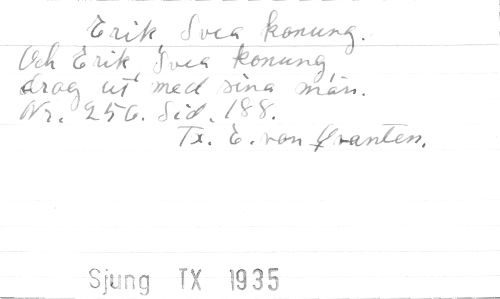 Erik Svea konung.
Och Erik Svea konung
drog ut med sina män.
Nr. 256. Sid. 188.
Tx. E. von Qvanten.
Sjung TX 1935